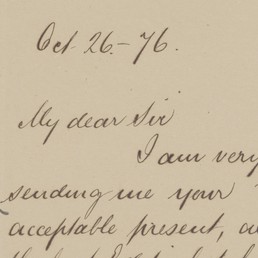 Oct 26 - 76.
My dear Sir
I am very
sending me your
acceptable present,